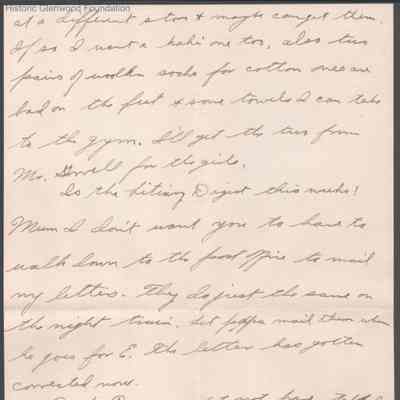 Historic Glenwood Foundation
at a different store & maybe can get them.
If so I want a kahki one too, also two
pairs of woolen socks for cotton ones are
bad on the feet & some towels I can take
to the gym. I'll get the two from
Mr. for the girls.
Is the Litirary Digest this weeks!
Mum I don't want you to have to
walk down to the post office to mail
my letters. They do just the same on
the night train. Let pappa mail them when
he goes for E. The letter has gotten
connected now.